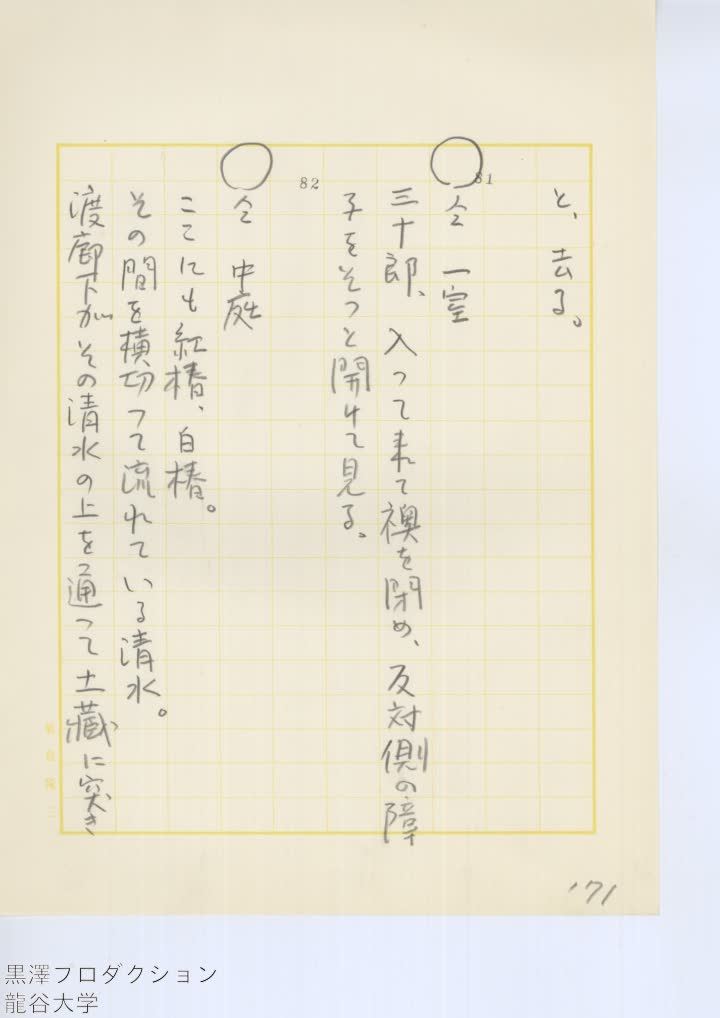 と、去る。
81
○仝 一室
三十郎、入って来て襖を閉め、反対側の障
子をそっと開けて見る。
82
○仝 中庭
ここにも紅椿、白椿。
その間を横切って流れている清水。
渡廊下がその清水の上を通って土蔵に突き
171
黒澤プロダクション
龍谷大学